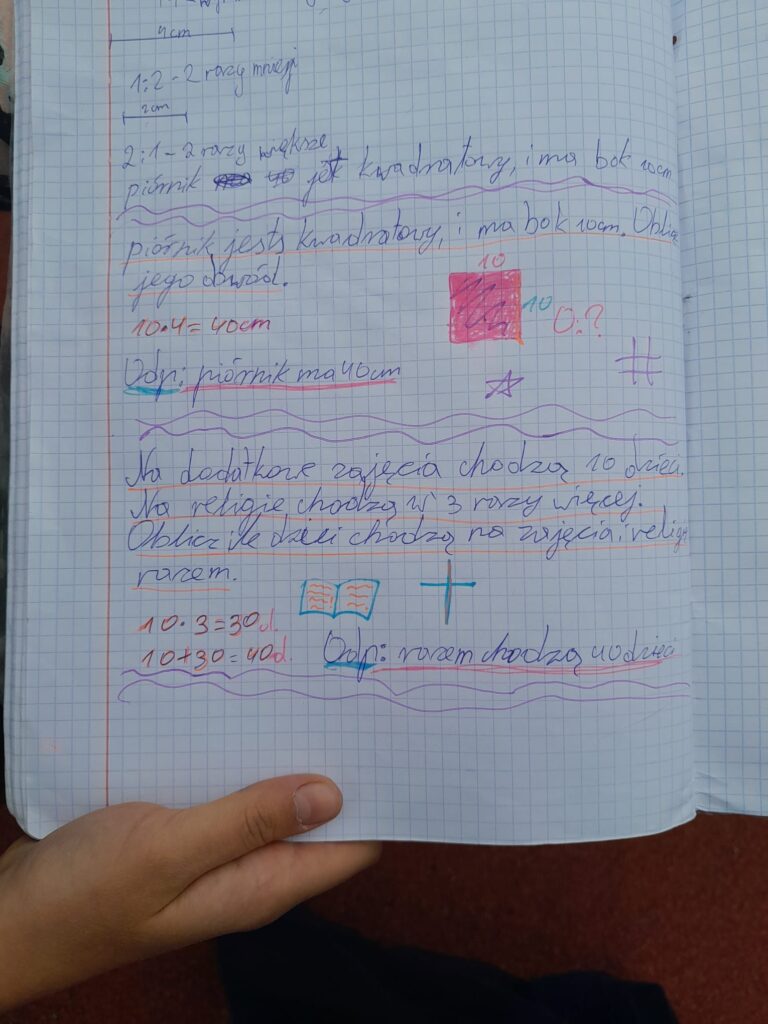 4cm
1:2 - 2 razy mniej
2cm
2:1 - 2 razy większe
piórnik jest kwadratowy, i ma bok 10cm
piórnik jest kwadratowy, i ma bok 10cm. Oblicz
jego obwód.
10
10
10·4=40cm
O:?
Odp: piórnik ma 40cm
Na dodatkowe zajęcia chodzą 10 dzieci.
Na religie chodzą w 3 razy więcej.
Oblicz ile dzieci chodzą na zajęcia i relig
razem.
10·3=30d.
10+30=40d.
Odp: razem chodzą 40 dzieci